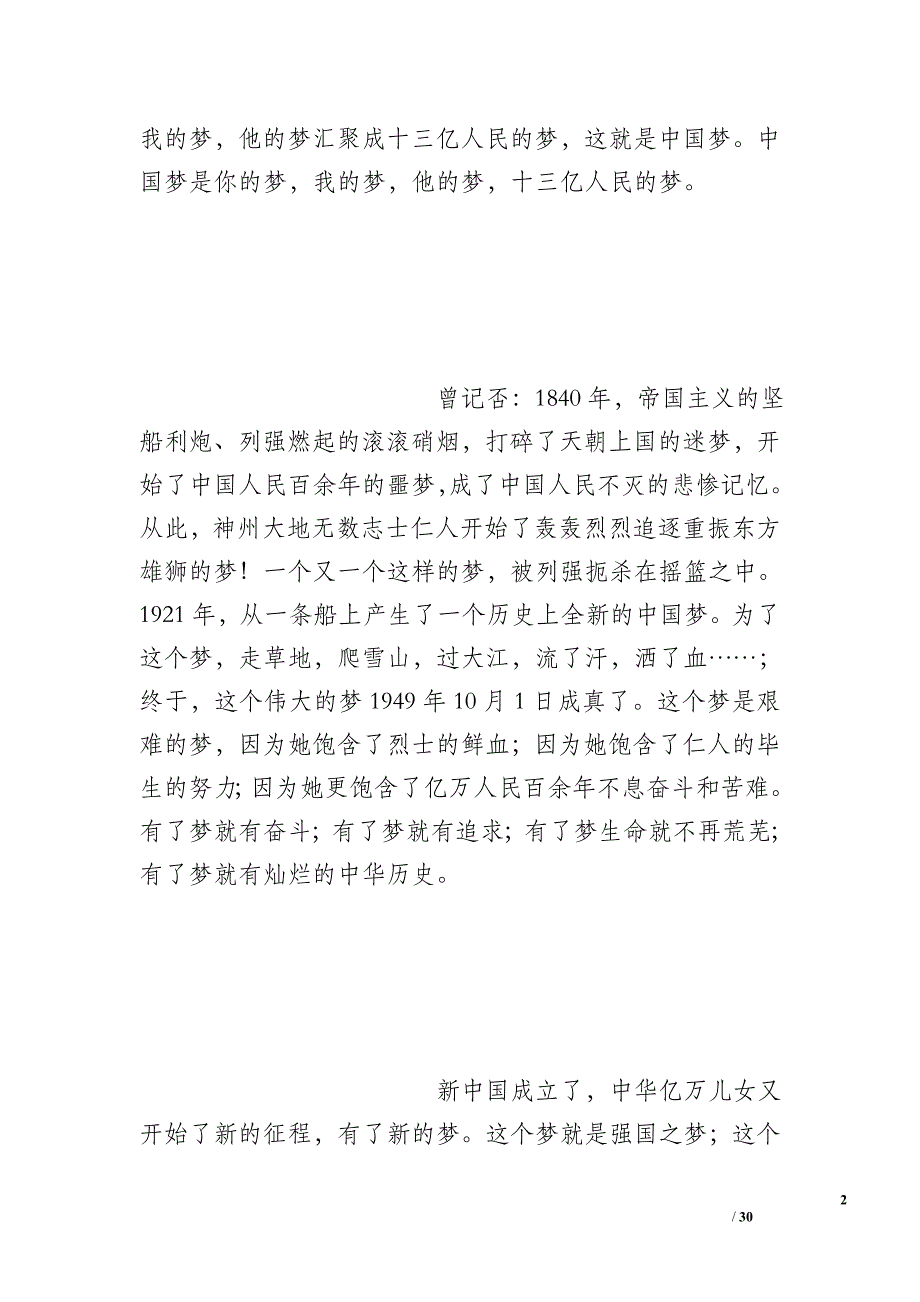 我的梦，他的梦汇聚成十三亿人民的梦，这就是中国梦。中
国梦是你的梦，我的梦，他的梦，十三亿人民的梦。
曾记否：1840 年，帝国主义的坚
船利炮、列强燃起的滚滚硝烟，打碎了天朝上国的迷梦，开
始了中国人民百余年的噩梦，成了中国人民不灭的悲惨记忆。
从此，神州大地无数志士仁人开始了轰轰烈烈追逐重振东方
雄狮的梦！一个又一个这样的梦，被列强扼杀在摇篮之中。
1921 年，从一条船上产生了一个历史上全新的中国梦。为了
这个梦，走草地，爬雪山，过大江，流了汗，洒了血……；
终于，这个伟大的梦 1949 年 10 月 1 日成真了。这个梦是艰
难的梦，因为她饱含了烈士的鲜血；因为她饱含了仁人的毕
生的努力；因为她更饱含了亿万人民百余年不息奋斗和苦难。
有了梦就有奋斗；有了梦就有追求；有了梦生命就不再荒芜；
有了梦就有灿烂的中华历史。
新中国成立了，中华亿万儿女又
开始了新的征程，有了新的梦。这个梦就是强国之梦；这个
2
/ 30